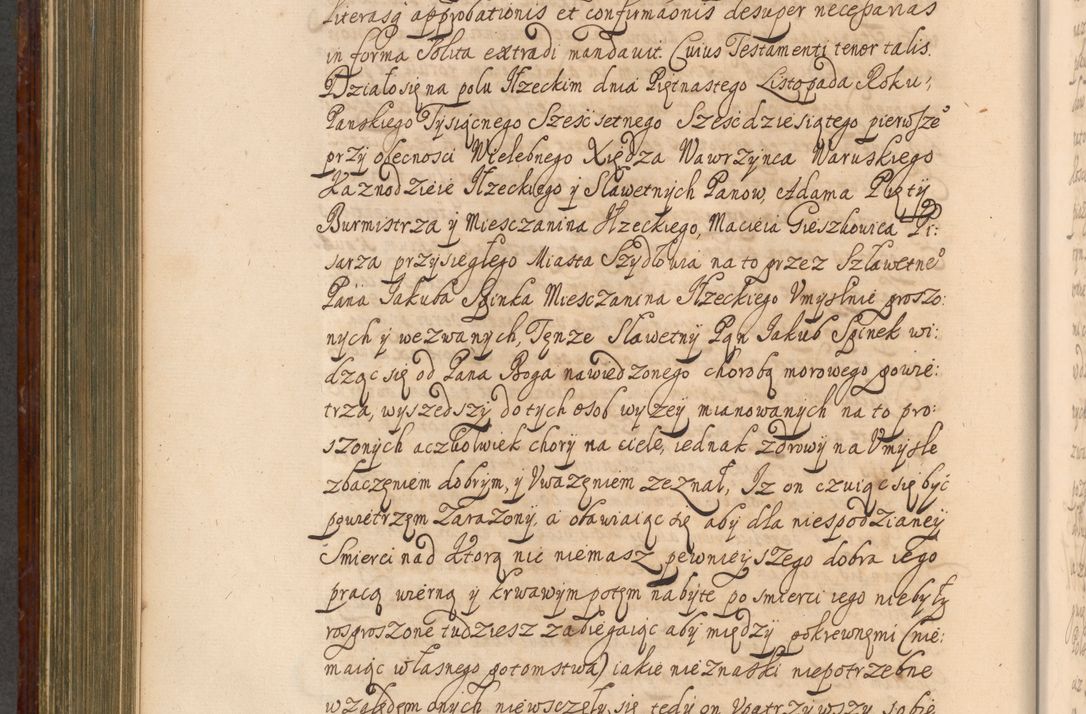 literasq approbationis et confirmaonis desuper necessarias
in forma Solita extradi mandavit. Cuius Testamenti tenor talis.
Działo się na polu Ilzeckim dnia Piętnastego Listopada Roku,
Panskiego Tysiącnego Szesc setnego Szesc dziesiątego pierwsze°
przy obecnosci Wielebnego Xiędza Wawrzynca Waruskiego
Kaznodzieie Ilzeckiego y Sławetnych Panow, Adama Pięty
Burmistrza y Miesczanina Ilzeckiego, Macieia Gieszkowica Pi:
sarza przysięgłego Miasta Szydłowia na to przez Szlawetne°
Pana Jakuba Spinka Miesczanina Ilzeckiego Umyslnie proszo:
nych y wezwanych, Tęnze Sławetny Pan Jakub Spinek wi:
dząc się od Pana Boga nawiedzonego chorobą morowego powie:
trza, wyszedszy do tych osob wyzey mianowanych na to pro:
szonych aczkolwiek chory na ciele, iednak zdrowy na Umysle
zbaczęniem dobrym, y Uwazęniem zeznał, Iz on czuiąc się być
powietrzęm Zarazony, a obawiaiąc się aby dla niespodzianey
Smierci nad Ktorą nic niemasz pewnieyszego dobra iego
pracą wierną y krwawym potęm nabyte po smierci iego niebyły
rosproszone tudziesz zabiegaiąc aby między pokrewnęmi (nie:
maiąc własnego potomstwa) iakie nieznaski niepotrzebne
wzaięmdnych niewsczeły się tedy on Upatrzywszy sobie